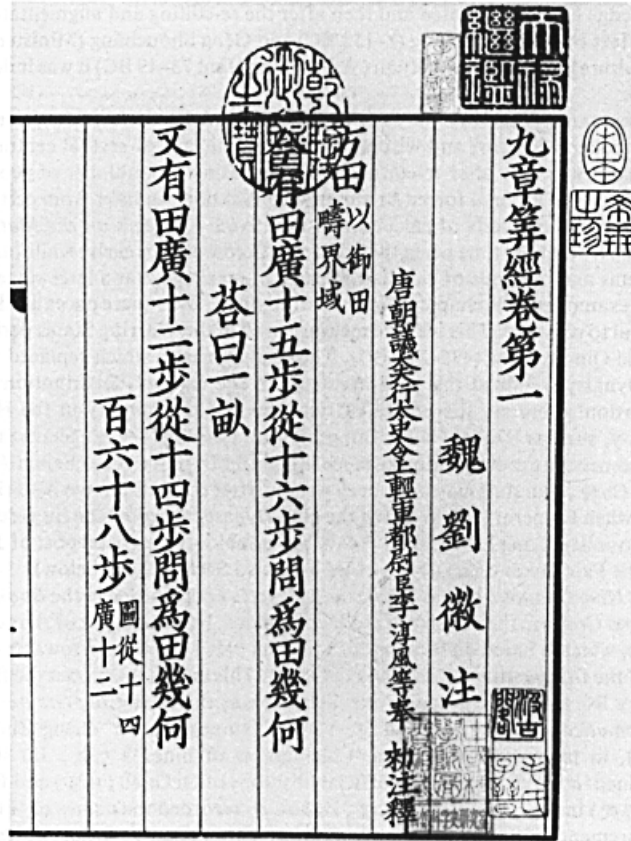 天祿繼鑑
乾隆御覽之寶
宋本
希世之珍
九章筭經卷第一
魏劉徽注
唐朝議大夫行太史令上輕車都尉臣李淳風等奉 勑注釋
方田以御田疇界域
今有田廣十五步從十六步問爲田幾何
荅曰一畝
又有田廣十二步從十四步問爲田幾何
百六十八步圖從十四廣十二